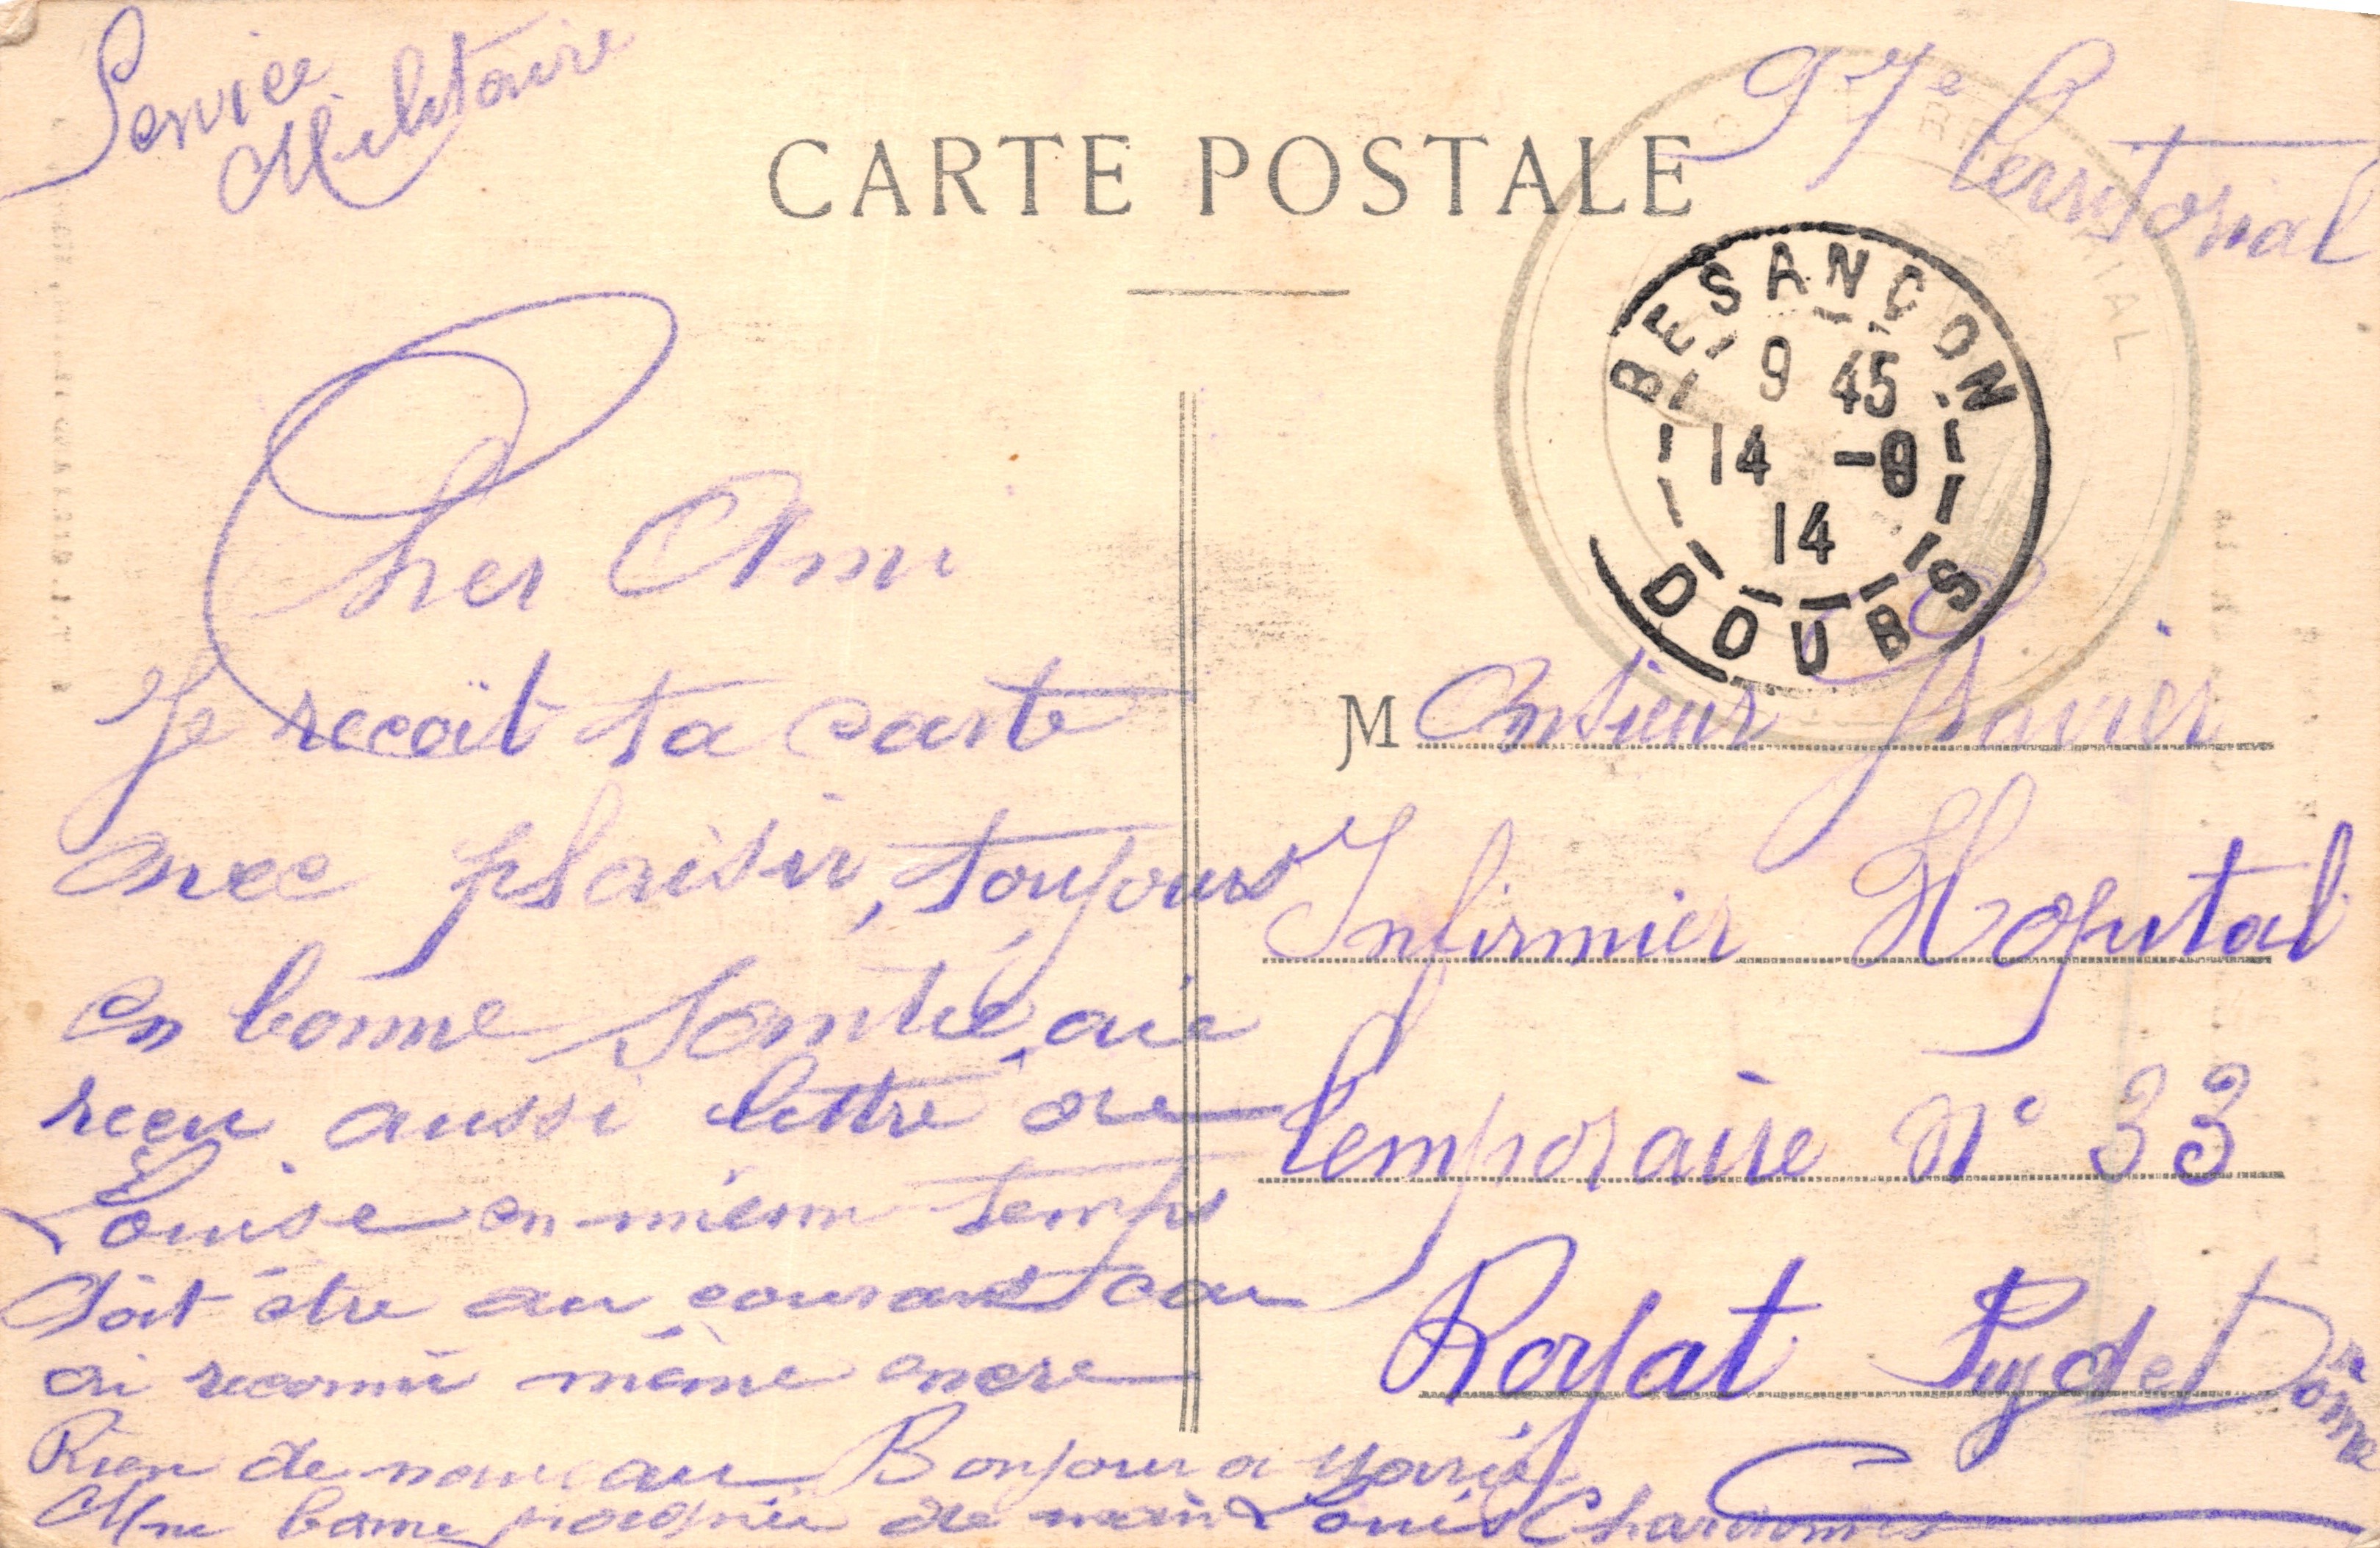 Service
Militaire
97e Territorial
CARTE POSTALE
BESANÇON
9 45
14 -9
14
DOUBS
Cher Ami
Je recoit ta carte
avec plaisir, toujours
en bonne Santé, aie
recu aussi lettre de
Louise en même temps
doit être au courant car
ai reconnu même encre
Rien de nouveau Bonjour a Marie
Une bonne poignée de main Louis
Monsieur
Infirmier Hopital
Temporaire N° 33
Royat Puy de Dôme